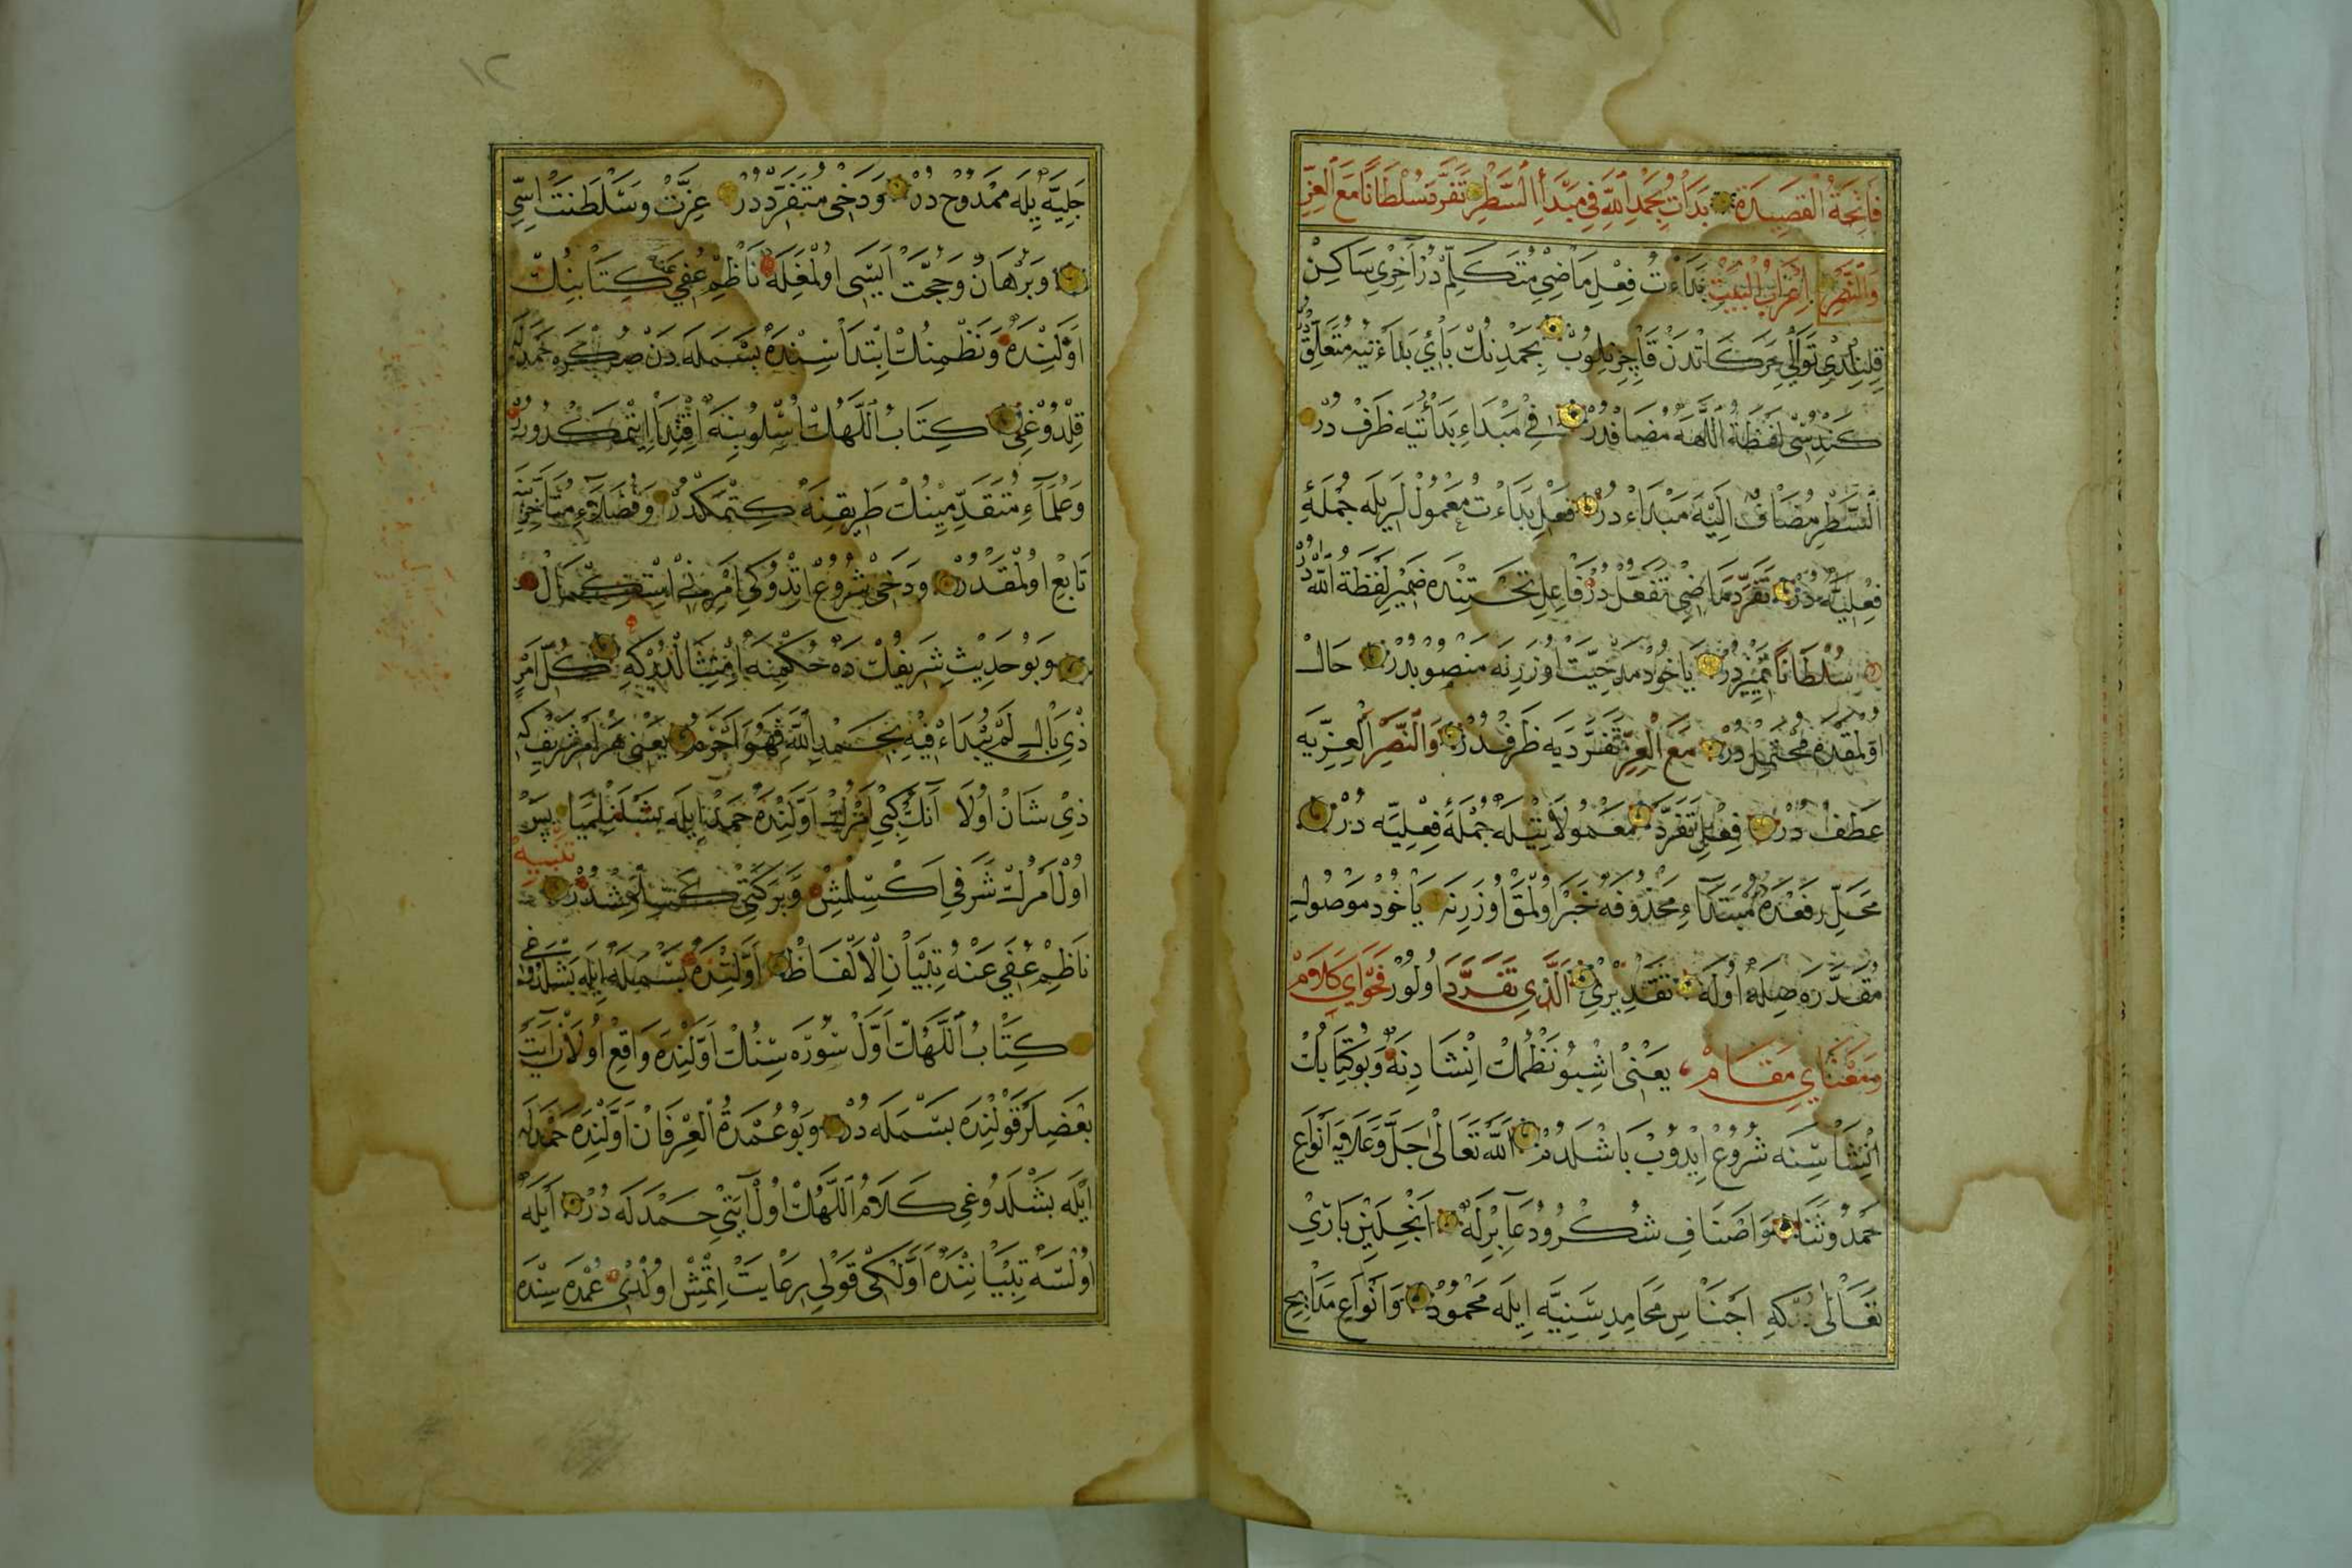 فَاتِحَةُ الْقَصِيدَةِ بَدَأْتُ بِحَمْدِ اللّٰهِ فِي مَبْدَأِ السَّطْرِ تَفَرَّدَ سُلْطَانًا مَعَ الْعِزِّ
وَالنَّصْرِ اِعْرَابُ الْبَيْتِ بَدَاءْتُ فِعْلِ مَاضِي مُتَكَلِّمْ دُرْ آخِرِي سَاكِنْ
قِلِنْدِي تَوَالِي حَرَكَاتْدَنْ قَاچِرِيلُوبْ بِحَمْدِنُكْ بَائِي بَدَاءْتُيَه مُتَعَلِّقْ دُرْ
كَنْدُسِي لَفْظَةُ اللّٰهَه مُضَافْدُرْ فِي مَبْدَاءِ بَدَأْتُيَه ظَرَفْ دُرْ
اَلسَّطْرِ مُضَافٌ اِلَيْهِ مَبْدَاءْ دُرْ فِعْلِ بَدَاءْتُ مَعْمُولْلَرِيلَه جُمْلَۀِ
فِعْلِيَّه دُرْ تَفَرَّدَ مَاضِي تَفَعُّلْ دُرْ فَاعِلِ تَحْتِنْدَه ضَمِيرِ لَفْظَةُ اللّٰهْ دُرْ
سُلْطَانًا تَمْيِيزْدُرْ يَاخُودْ مَدْحِيَّتْ اُوزَرِنَه مَنْصُوبْدُرْ حَالْ
اوُلْمَقْدَه مُحْتَمِلْ دُرْ مَعَ الْعِزِّ تَفَرَّدَيَه ظَرَفْدُرْ وَالنَّصْرِ الْعِزِّيَه
عَطَفْ دُرْ فِعْلِ تَفَرَّدَ مَعْمُولَاتِيلَه جُمْلَۀِ فِعْلِيَّه دُرْ
مَحَلِّ رَفْعْدَه مُبْتَدَاءِ مَحْذُوفَه خَبَرْ اوُلْمَقْ اُوزَرِنَه يَاخُودْ مَوْصُولِ
مُقَدَّرَه صِلَه اوُلَه تَقْدِيرِي اَلَّذِي تَفَرَّدَ اوُلُورْ فَحْوَايِ كَلَامْ
وَمَعْنَايِ مَقَامْ يَعْنِي اِشْبُو نَظْمُكْ اِنْشَادِنَه وَبُو كِتَابُكْ
اِنْشَاسِنَه شُرُوعْ اِيدُوبْ بَاشْلَدُمْ اَللّٰهُ تَعَالَى جَلَّ وَعَلَايَه اَنْوَاعِ
حَمْدُ وثَنَا وَاَصْنَافِ شُكْرُ ودُعَا بِرْلَه اَنْجِلَيِنْ بَارِيْ
تَعَالَى دُرْكِه اَجْنَاسِ مَحَامِدِ سَنِيَّه اِيلَه مَحْمُودْ وَاَنْوَاعِ مَدَايِحِ
١٢
جَلِيَّه يِلَه مَمْدُوحْ دُرْ وَدَخِي مُتَفَرِّدْدُرْ عِزَّتْ وَسَلْطَنَتْ اِسِّي
وَبُرْهَانْ وَحُجَّتْ اِيسِّي اوُلْمَغِلَه نَاظِمْ عُفِيَ عَنْهُ كِتَابِنُكْ
اَوَّلِنْدَه وَنَظْمِنُكْ اِبْتِدَاسِنْدَه بَسْمَلَه دَنْ صُكْرَه حَمْدَلَه
قِلْدُوغِي كِتَابُ اللّٰهُكْ اُسْلُوبِنَه اِقْتِدَا اِيتْمَكْدُرْ
وَعُلَمَاءِ مُتَقَدِّمِينُكْ طَرِيقِنَه كِتْمَكْدُرْ وَفُضَلَاءِ مُتَأَخِّرِينَه
تَابِعْ اوُلْمَقْدُرْ وَدَخِي شُرُوعْ اِتْدُوكِي اَمْرِنْ
وَبُو حَدِيثِ شَرِيفُكْ دَه حُكْمِنَه اِمْتِثَالْدُرْكِه كُلُّ اَمْرٍ
ذِي بَالٍ لَمْ يُبْدَاءْ فِيهِ بِحَمْدِ اللّٰهِ فَهُوَ اَجْزَمُ يَعْنِي هَرْ اَمْرِ شَرِيفْ كِه
ذِي شَانْ اوُلَا آنُكْ كِبِي اَمْرُكْ اَوَّلِنْدَه حَمْدِ اِيلَه بَشْلَنْلِمَيَا پَسْ
اوُلْ اَمْرُكْ شَرَفِي اَكْسِلْمِشْ وَبَرَكَتِي كَسِلْمِشْدُرْ تَنْبِيه
نَاظِمْ عُفِيَ عَنْهُ تِبْيَانِ الْاَلْفَاظْ اَوَّلِنْدَه بَسْمَلَه اِيلَه بَشْلَدُوغِي
كِتَابُ اللّٰهُكْ اَوَّلْ سُورَه سِنُكْ اَوَّلِنْدَه وَاقِعْ اوُلَانْ آيَتْ
بَعْضِلَرْ قَوْلِنْدَه بَسْمَلَه دُرْ وَبُو عُمْدَةُ الْعِرْفَانْ اَوَّلِنْدَه حَمْدَلَه
اِيلَه بَشْلَدُوغِي كَلَامُ اللّٰهُكْ اوُلْ آيَتِي حَمْدَلَه دُرْ اَيْلَه
اوُلْسَه تِبْيَانِنْدَه اَوَّلْكِي قَوْلِي رِعَايَتْ اِتْمِشْ اوُلْدِي عُمْدَه سِنْدَه